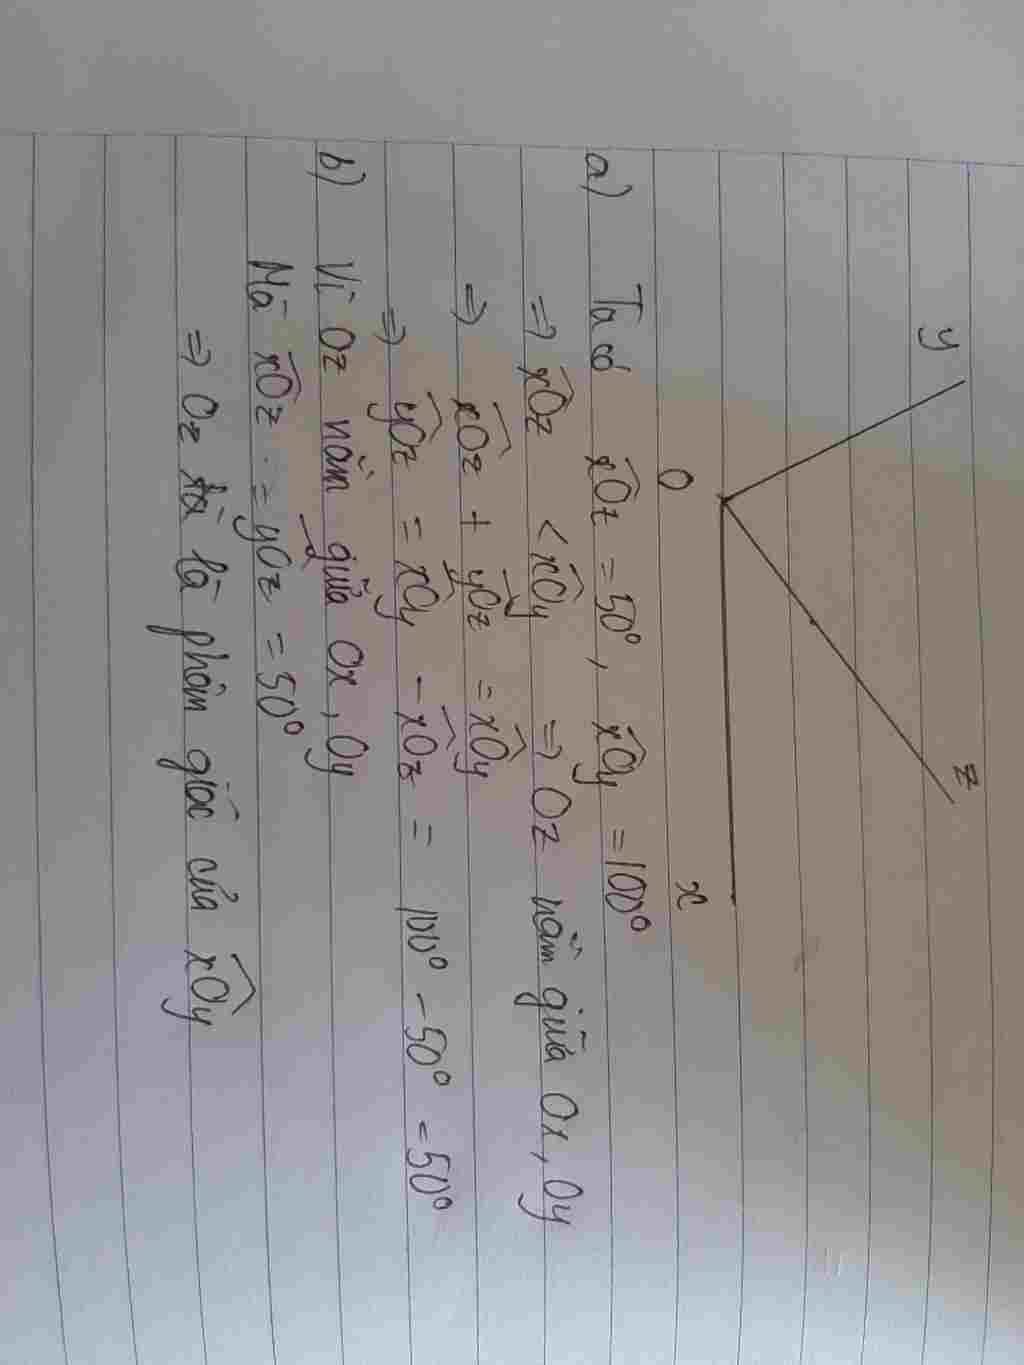 y
z
O
x
a) Ta có xOz = 50°, xOy = 100°
=> xOz < xOy => Oz nằm giữa Ox, Oy
=> xOz + yOz = xOy
=> yOz = xOy - xOz = 100° - 50° = 50°
b) Vì Oz nằm giữa Ox, Oy
Mà xOz = yOz = 50°
=> Oz là phân giác của xOy